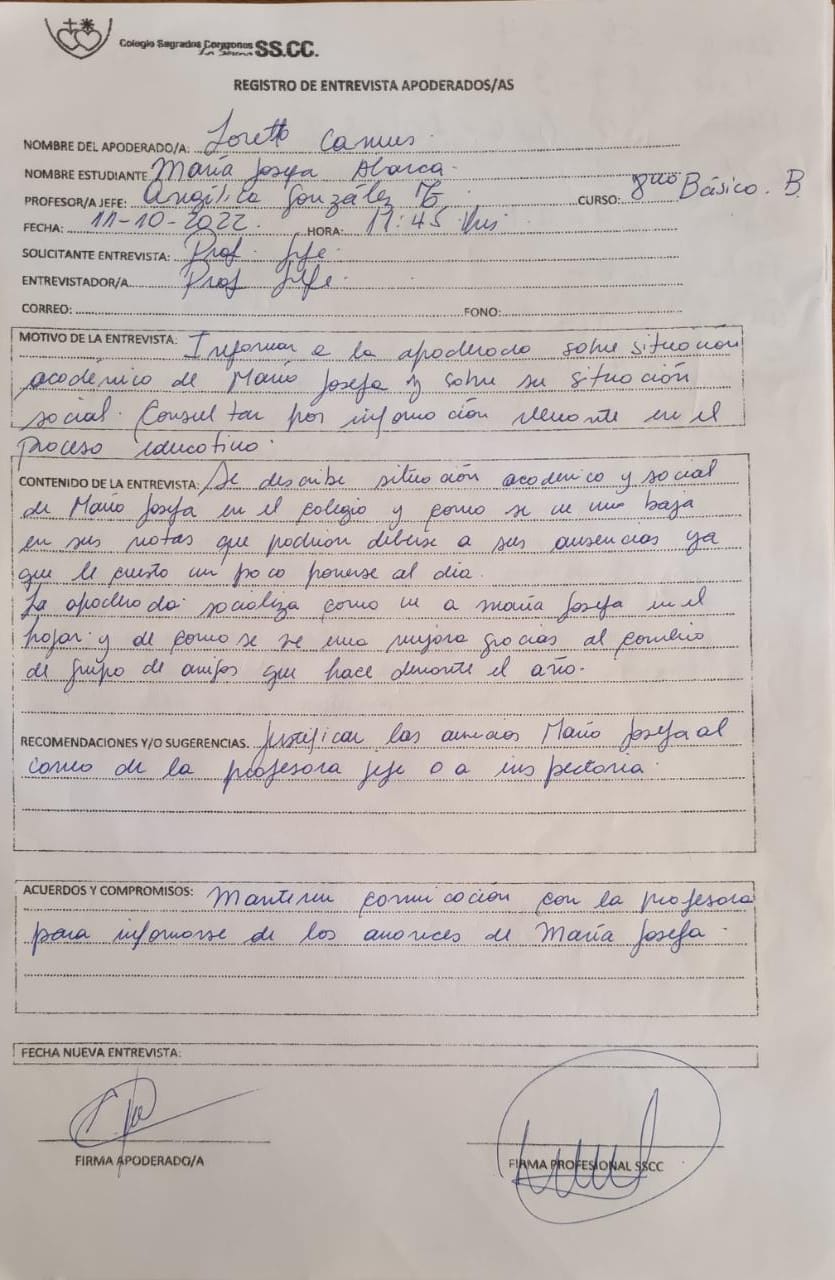 Colegio Sagrados Corazones SS.CC.
La Serena
REGISTRO DE ENTREVISTA APODERADOS/AS
NOMBRE DEL APODERADO/A: Loretto Camus.
NOMBRE ESTUDIANTE María Josefa Abarca.
PROFESOR/A JEFE: Angélica González CURSO: 8avo Básico. B
FECHA: 11-10-2022. HORA: 11:45 Hrs
SOLICITANTE ENTREVISTA: Prof. Jefe.
ENTREVISTADOR/A Prof Jefe.
CORREO: FONO:
MOTIVO DE LA ENTREVISTA: Informar a la apoderado sobre situación
académica de María Josefa y sobre su situación
social. Consultar por información relevante en el
proceso educativo.
CONTENIDO DE LA ENTREVISTA: Se describe situación académica y social
de María Josefa en el colegio y como se ve una baja
en sus notas que podrían deberse a sus ausencias ya
que le cuesta un poco ponerse al día.
La apoderada socializa como ve a María Josefa en el
hogar y de como se ve una mejora gracias al cambio
de grupo de amigos que hace durante el año.
RECOMENDACIONES Y/O SUGERENCIAS. Justificar las ausencias María Josefa al
correo de la profesora jefe o a inspectoria.
ACUERDOS Y COMPROMISOS: Mantener comunicación con la profesora
para informarse de los avances de María Josefa.
FECHA NUEVA ENTREVISTA:
FIRMA APODERADO/A
FIRMA PROFESIONAL SSCC